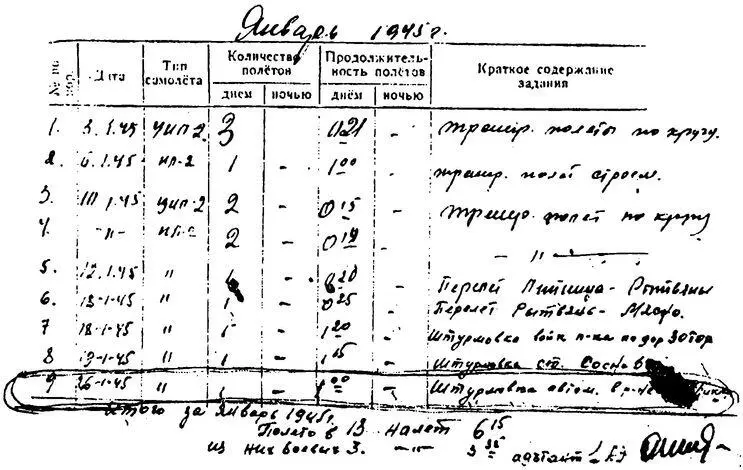 Январь 1945 г.
№ по пор. Дата Тип самолёта Количество полётов днем ночью Продолжительность полётов днём ночью Краткое содержание задания
1. 3.1.45 УИЛ-2 3 - 0 21 - трениp. полеты по кругу.
2. 6.1.45 ИЛ-2 1 - 1 00 - трениp. полет строем.
3. 10.1.45 УИЛ-2 2 - 0 15 - полет по кругу
4. -"- ИЛ-2 2 - 0 14 - - " -
5. 12.1.45 " 1 - 0 20 - Перелет - Рытвяны
6. 13-1-45 " 1 - 0 25 - Перелет Рытвяны -
7 18-1-45 " 1 - 1 20 - Штурмовка войск п-ка по дор
8 19-1-45 " 1 - 1 15 - Штурмовка ст.
9 26-1-45 " 1 - 1 00 - Штурмовка автом.
Итого за январь 1945г.
Полетов 13 налет 6 15
из них боевых 3. -"- 3 35 адъютант